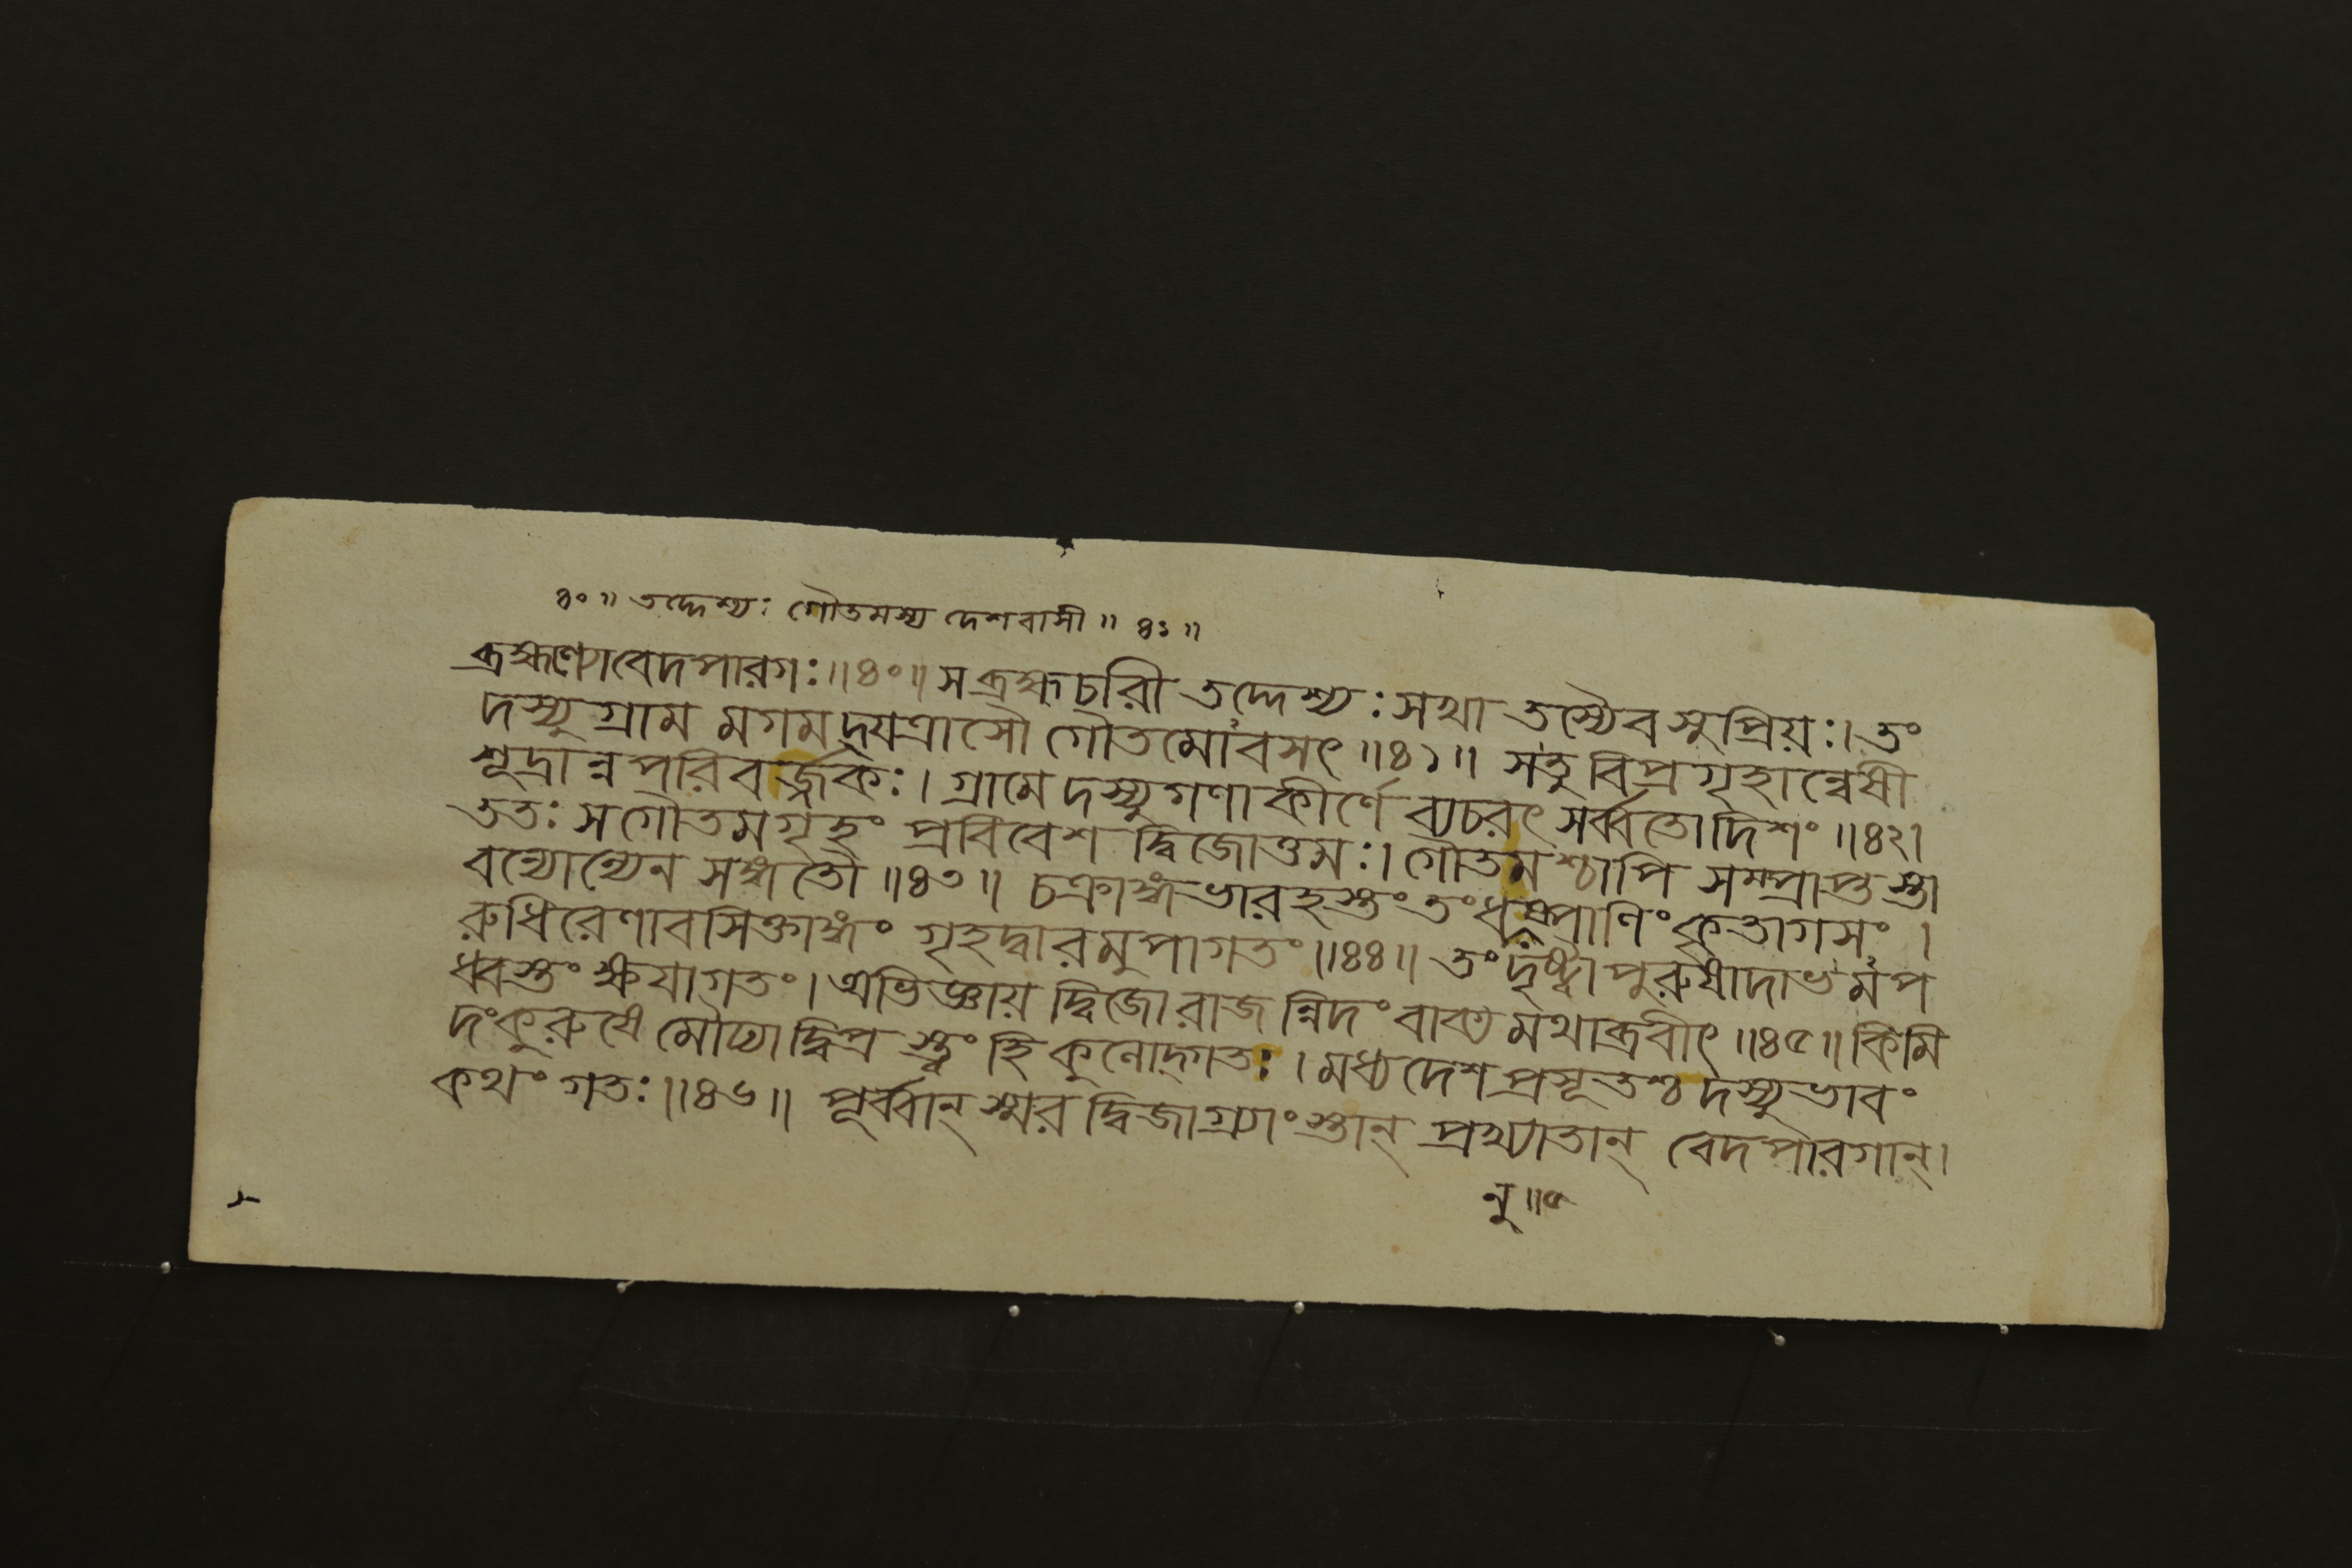 ৪০॥ তদ্দেশ্যঃ গৌতমস্য দেশবাসী॥ ৪১॥
ব্রহ্মণ্যোবেদপারগঃ॥৪০॥ সব্রহ্মচরী তদ্দেশ্যঃ সখা তস্যৈব সুপ্রিয়ঃ। তং
দস্যুগ্রাম মগমদ্যত্রাসৌ গৌতমোবসৎ॥৪১॥ সতু বিপ্রগৃহান্বেষী
শূদ্রান্নপরিবর্জ্জকঃ। গ্রামে দস্যুগণাকীর্ণে ব্যচরৎ সর্ব্বতোদিশং॥৪২।
ততঃ সগৌতমগৃহং প্রবিবেশ দ্বিজোত্তমঃ। গৌতমশ্চাপি সম্প্রাপ্তস্তা
বন্যোন্যেন সঙ্গতৌ॥৪৩॥ চক্রাঙ্গভারহস্তং তং ধনুষ্পাণিং কৃতাগসং।
রুধিরেণাবসিক্তাঙ্গং গৃহদ্বারমুপাগতং॥৪৪॥ তং দৃষ্ট্বা পুরুষাদাভমপ
ধ্বস্তং ক্ষয়াগতং। অভিজ্ঞায় দ্বিজোরাজ ন্নিদং বাক্য মথাব্রবীৎ॥৪৫॥ কিমি
দংকুরুষে মৌঢ্যাদ্বিপ্র স্ত্বং হি কুলোদ্গতঃ। মধ্যদেশপ্রসূতশ্চ দস্যুভাবং
কথং গতঃ॥৪৬॥ পূর্ব্বান্ স্মর দ্বিজাগ্র্যাংস্তান্ প্রখ্যাতান্ বেদপারগান্।
নু॥৫